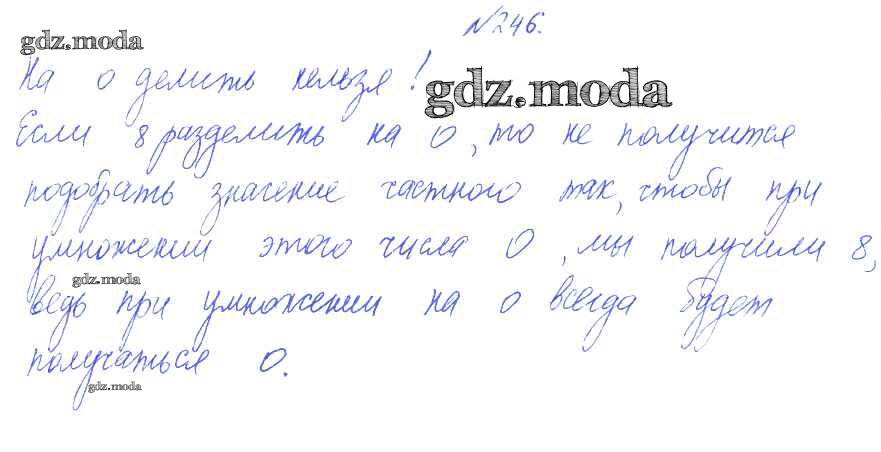 №246.
gdz.moda
На 0 делить нельзя!
gdz.moda
Если 8 разделить на 0, то не получится
подобрать значение частного так, чтобы при
умножении этого числа 0, мы получили 8,
gdz.moda
ведь при умножении на 0 всегда будет
получаться 0.
gdz.moda